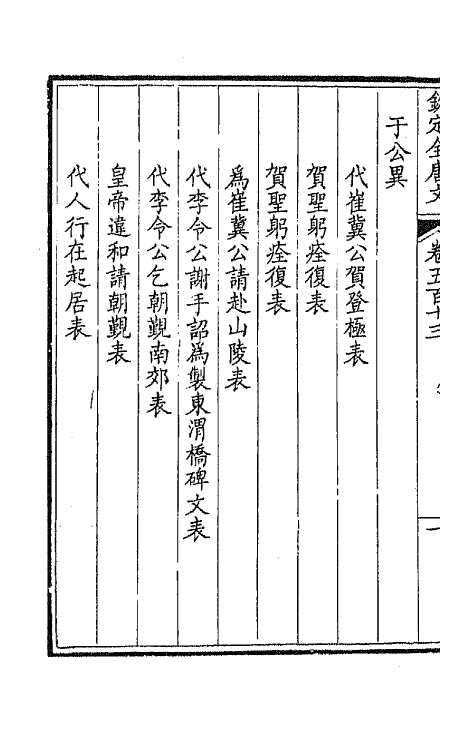 欽定全唐文
卷五百十三
一
于公異
代崔冀公賀登極表
賀聖躬痊復表
賀聖躬痊復表
爲崔冀公請赴山陵表
代李令公謝手詔爲製東渭橋碑文表
代李令公乞朝覲南郊表
皇帝違和請朝覲表
代人行在起居表